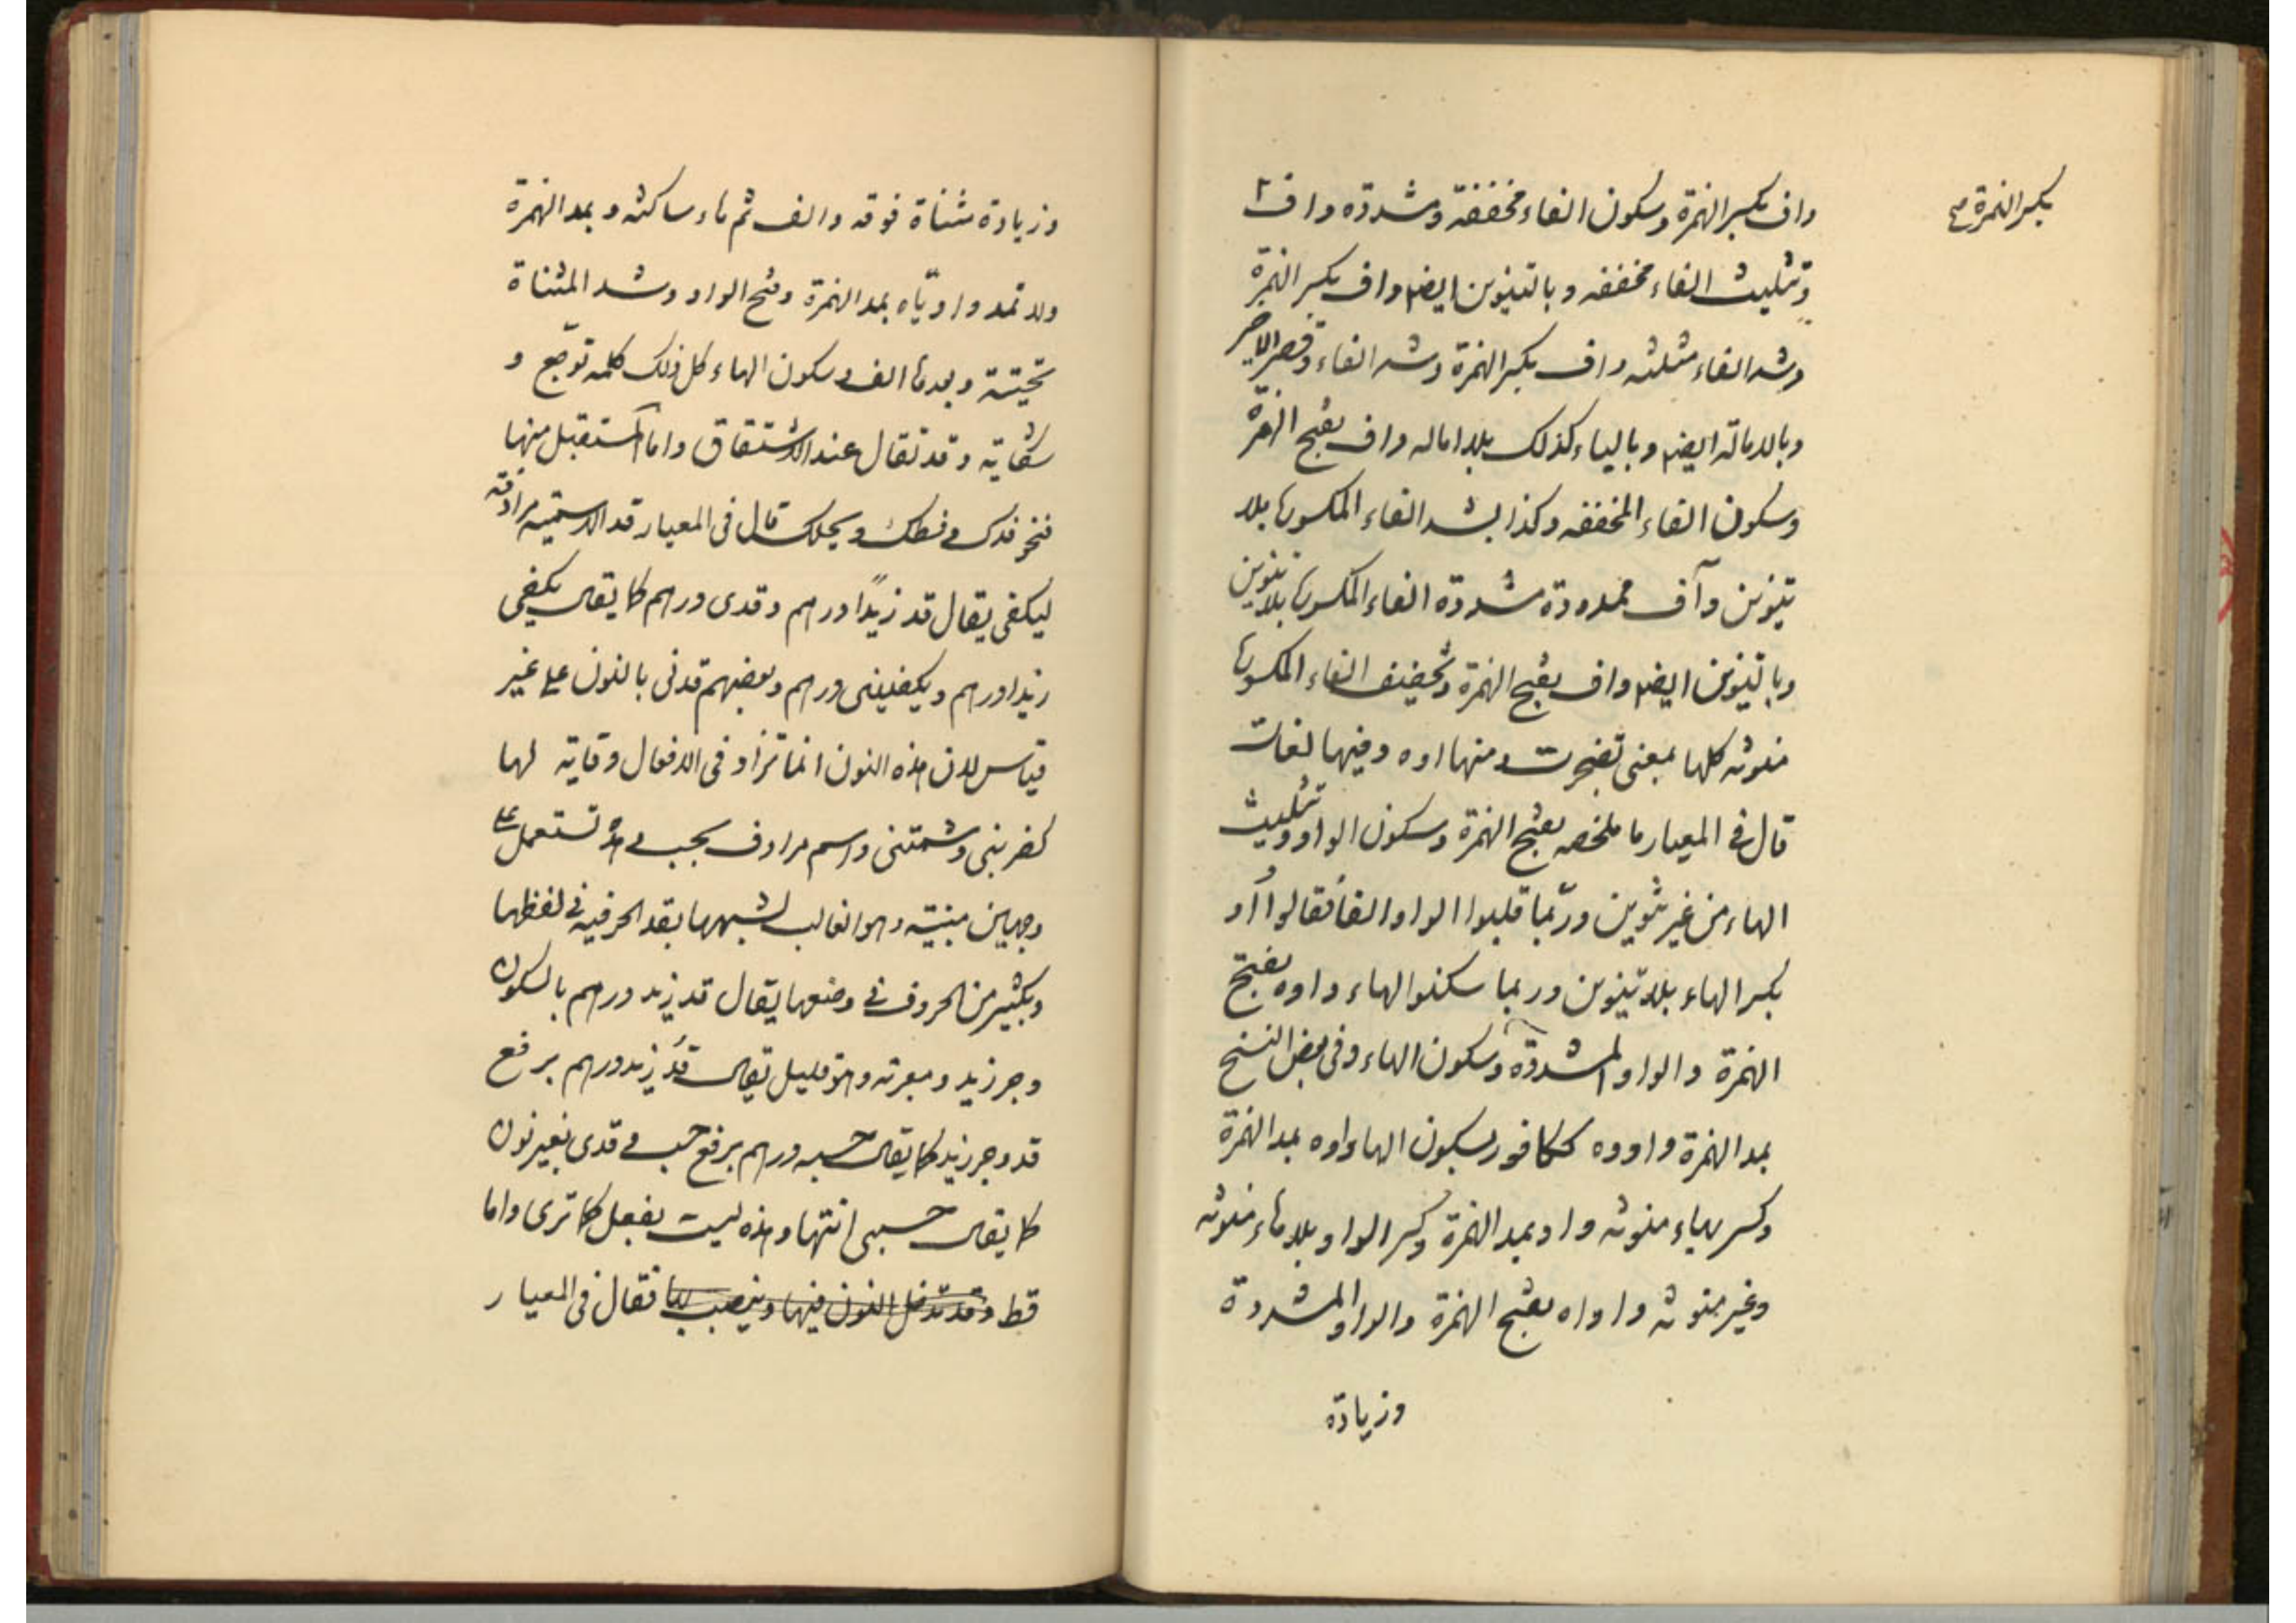 بكسر الهمزة صح
واف بكسر الهمزة وسكون الفاء مخففة ومشددة واف
وتثليث الفاء مخففه وبالتنوين ايضا واف بكسر الهمزة
وشد الفاء مثلثه واف بكسر الهمزة وشد الفاء وقصر الاخر
وبالامالة ايضا وبالياء كذلك بلا اماله واف بفتح الهمزة
وسكون الفاء المخففه وكذا بشد الفاء المكسورها بلا
تنوين وآف ممدودة مشددة الفاء المكسورها بلا تنوين
وبالتنوين ايضا واف بفتح الهمزة وتخفيف الفاء المكسورها
منونه كلها بمعنى تضجرت ومنها اوه وفيها لغات
قال في المعيار ما ملخصه بفتح الهمزة وسكون الواو وتثليث
الهاء من غير تنوين وربّما قلبوا الواو الفا فقالوا أاو
بكسر الهاء بلا تنوين وربما سكنوا الهاء واوه بفتح
الهمزة والواو المشددة وسكون الهاء وفي بعض النسخ
بمد الهمزة واووه ككافور بسكون الهاء واوه بمد الهمزة
وكسر بهاء منونه واو بمد الهمزة وكسر الواو بلا هاء منونه
وغير منونه واواه بفتح الهمزة والواو المشددة
وزيادة
وزيادة مثناة فوقه والف ثم هاء ساكنه وبمد الهمزة
ولا تمد واوتّاه بمد الهمزة وفتح الواو وشد المثناة
تحيتة وبعدها الف وسكون الهاء كل ذلك كلمه توجّع و
شكاية وقد تقال عند الاشتقاق واما المستقبل منها
فنحو قدك وقطك وبجلك قال في المعيار قد الاسميه مرادفه
ليكفى يقال قد زيدًا درهم وقدى درهم كما يقال يكفى
زيدا درهم ويكفينى درهم وبعضهم قدنى بالنون على غير
قياس لان هذه النون انما تزاد في الافعال وقاية لها
كضربنى وشمتنى واسم مرادف بحسب وهى تستعمل على
وجهين مبنيّه وهو الغالب لشبهها بقد الحرفيه في لفظها
وبكثير من الحروف في وضعها يقال قد زيد درهم بالسكون
وجر زيد ومعربه وهو قليل يقال قدُ زيد درهم برفع
قد وجر زيد كما يقال حسبه درهم برفع حسب وقدى بغير نون
كما يقال حسبى انتها وهذه ليست بفعل كما ترى واما
قط وقد تدخل النون فيها وينصب بها فقال فى المعيار